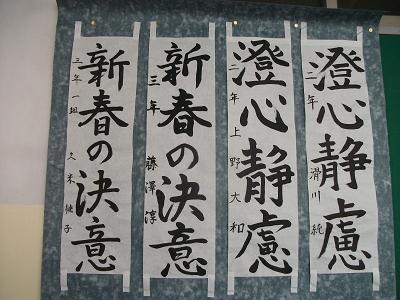 澄心静慮
二年 滑川 純
澄心静慮
二年 上野大和
新春の決意
三年 藤澤淳
新春の決意
三年一組 久米 子